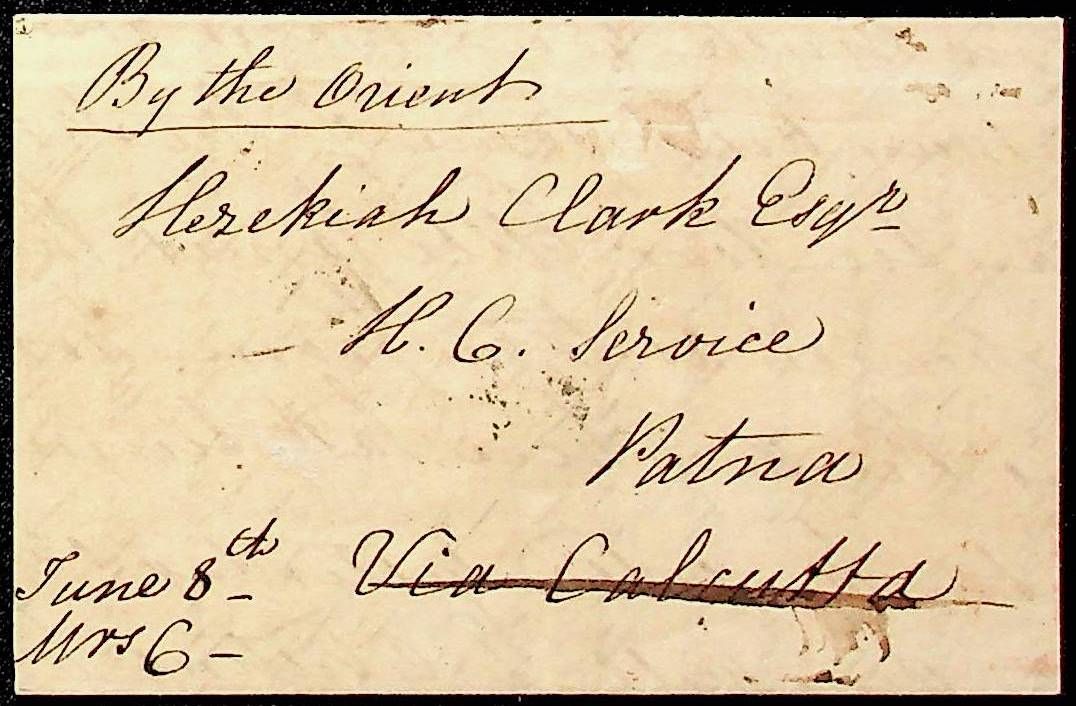 By the Orient
Hezekiah Clark Esqr
H. C. Service
Patna
Via Calcutta
June 8th
Mrs C